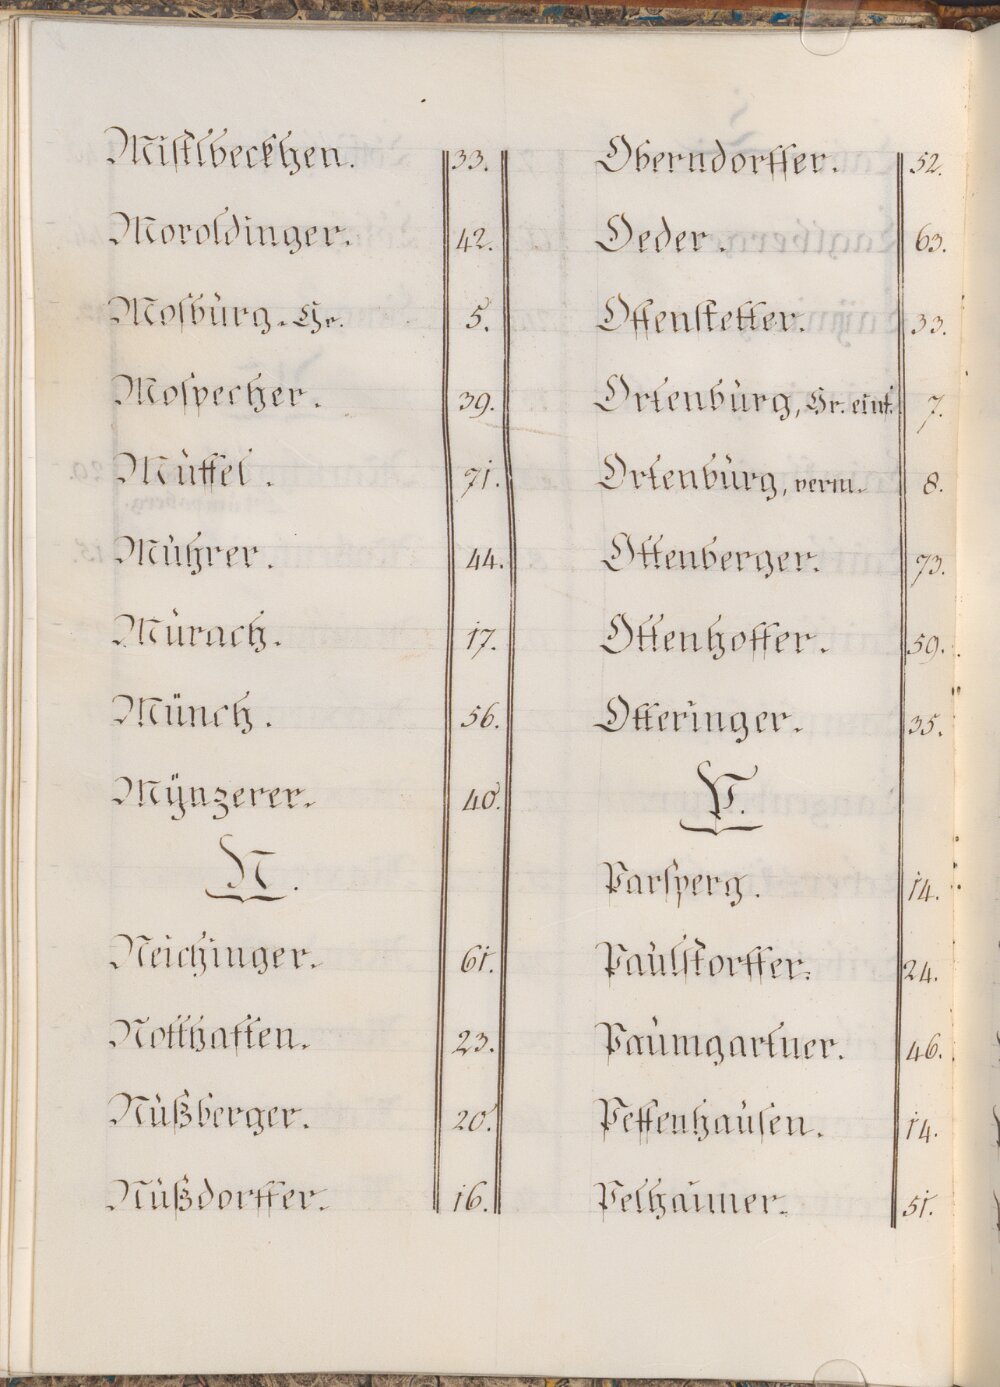 Mistlbeckhen. 33.
Moroldinger. 42.
Mosbürg. Gr. 5.
Mospecher. 39.
Müffel. 71.
Mührer. 44.
Mürach. 17.
Münch. 56.
Münzerer. 40.
N.
Neichinger. 61.
Notthafften. 23.
Nüßberger. 20.
Nüßdorffer. 16.
Oberndorffer. 52.
Oeder. 63.
Offenstetter. 33.
Ortenbürg, Gr. einf. 7.
Ortenbürg, verm. 8.
Ottenberger. 73.
Ottenhoffer. 59.
Otteringer. 35.
P.
Parsperg. 14.
Paulstorffer. 24.
Paumgartner. 46.
Peffenhausen. 14.
Pelhaimer. 51.